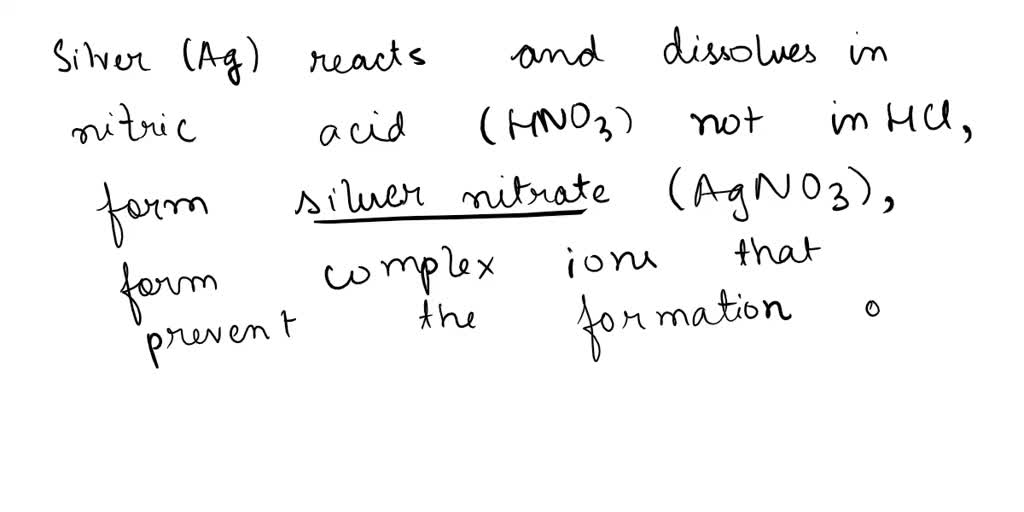 Silver (Ag) reacts and dissolves in
nitric acid (HNO3) not in HCl,
form silver nitrate (AgNO3),
form complex ions that
prevent the formation o